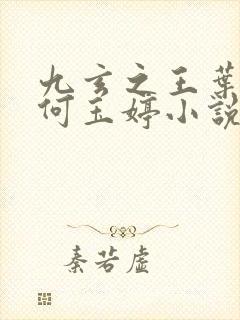 九玄之王葉
何玉婷小說
秦若虛